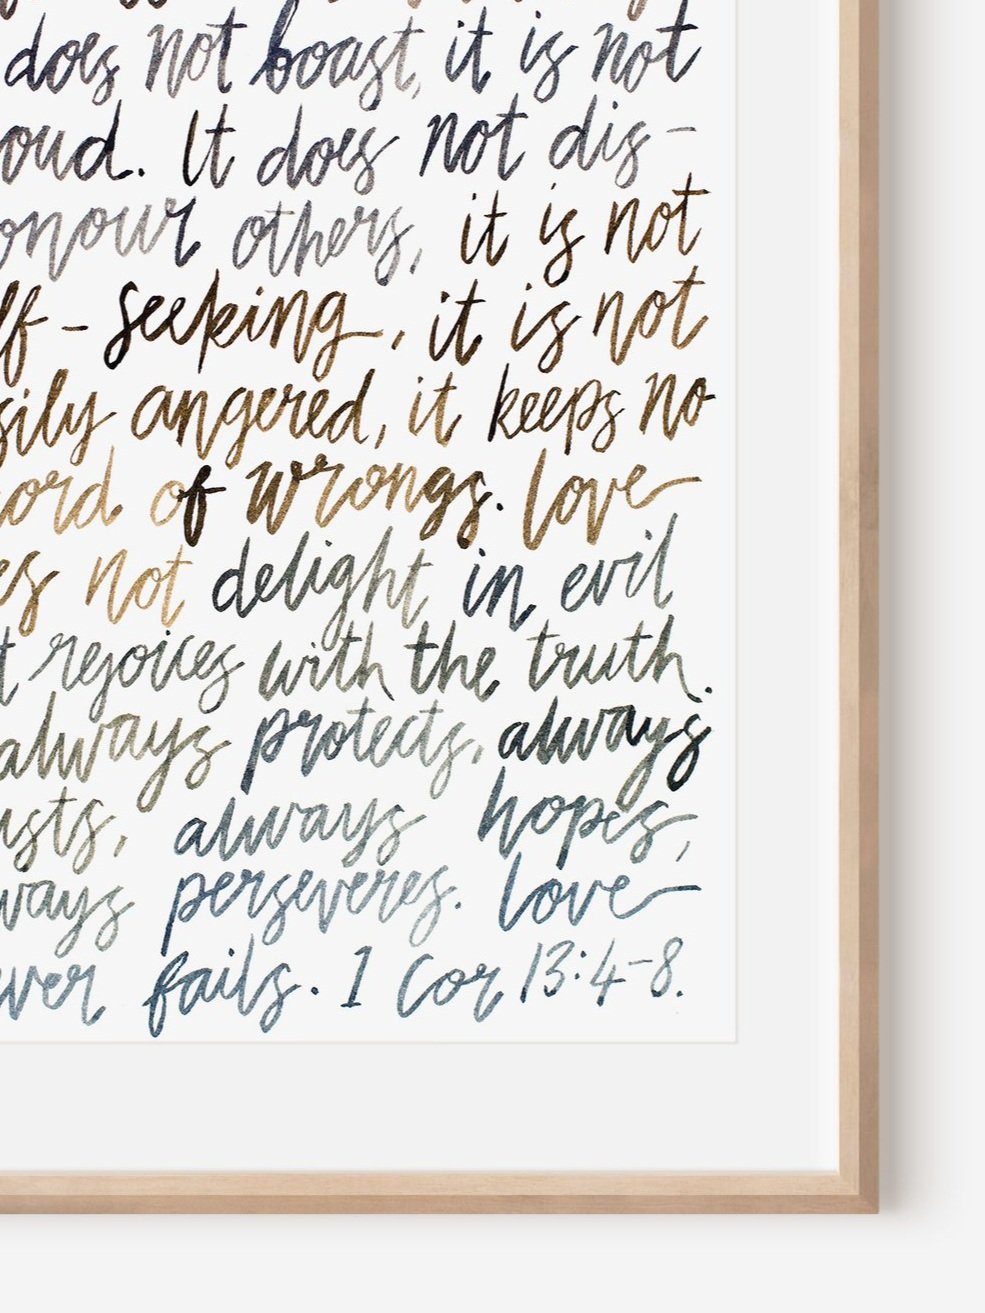 does not boast, it is not
oud. It does not dis-
onour others, it is not
lf-seeking, it is not
sily angered, it keeps no
ord of wrongs. Love
es not delight in evil
t rejoices with the truth.
always protects, always
usts, always hopes,
ways perseveres. Love
ver fails. 1 Cor 13:4-8.